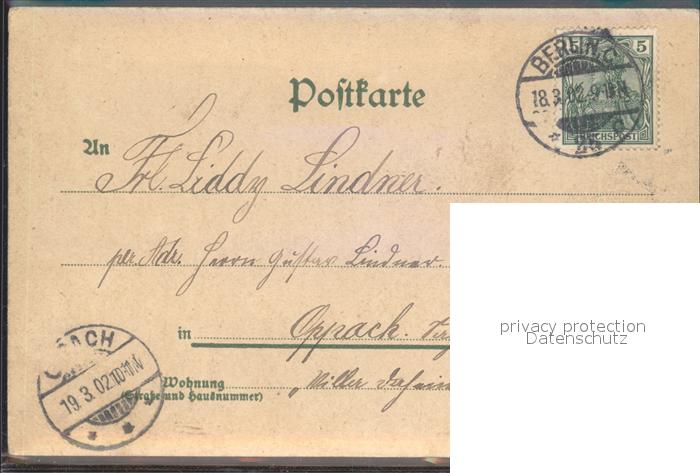 Postkarte
BERLIN.C.
18.3.02.9-
5
REICHSPOST
An
Frl. Liddy Lindner.
per. Adr. Herrn Gustav Lindner.
privacy protection
Datenschutz
in Oppach.
OPPACH
19.3.02.10-11V.
Wohnung
(Straße und Hausnummer)
"Villa Daheim